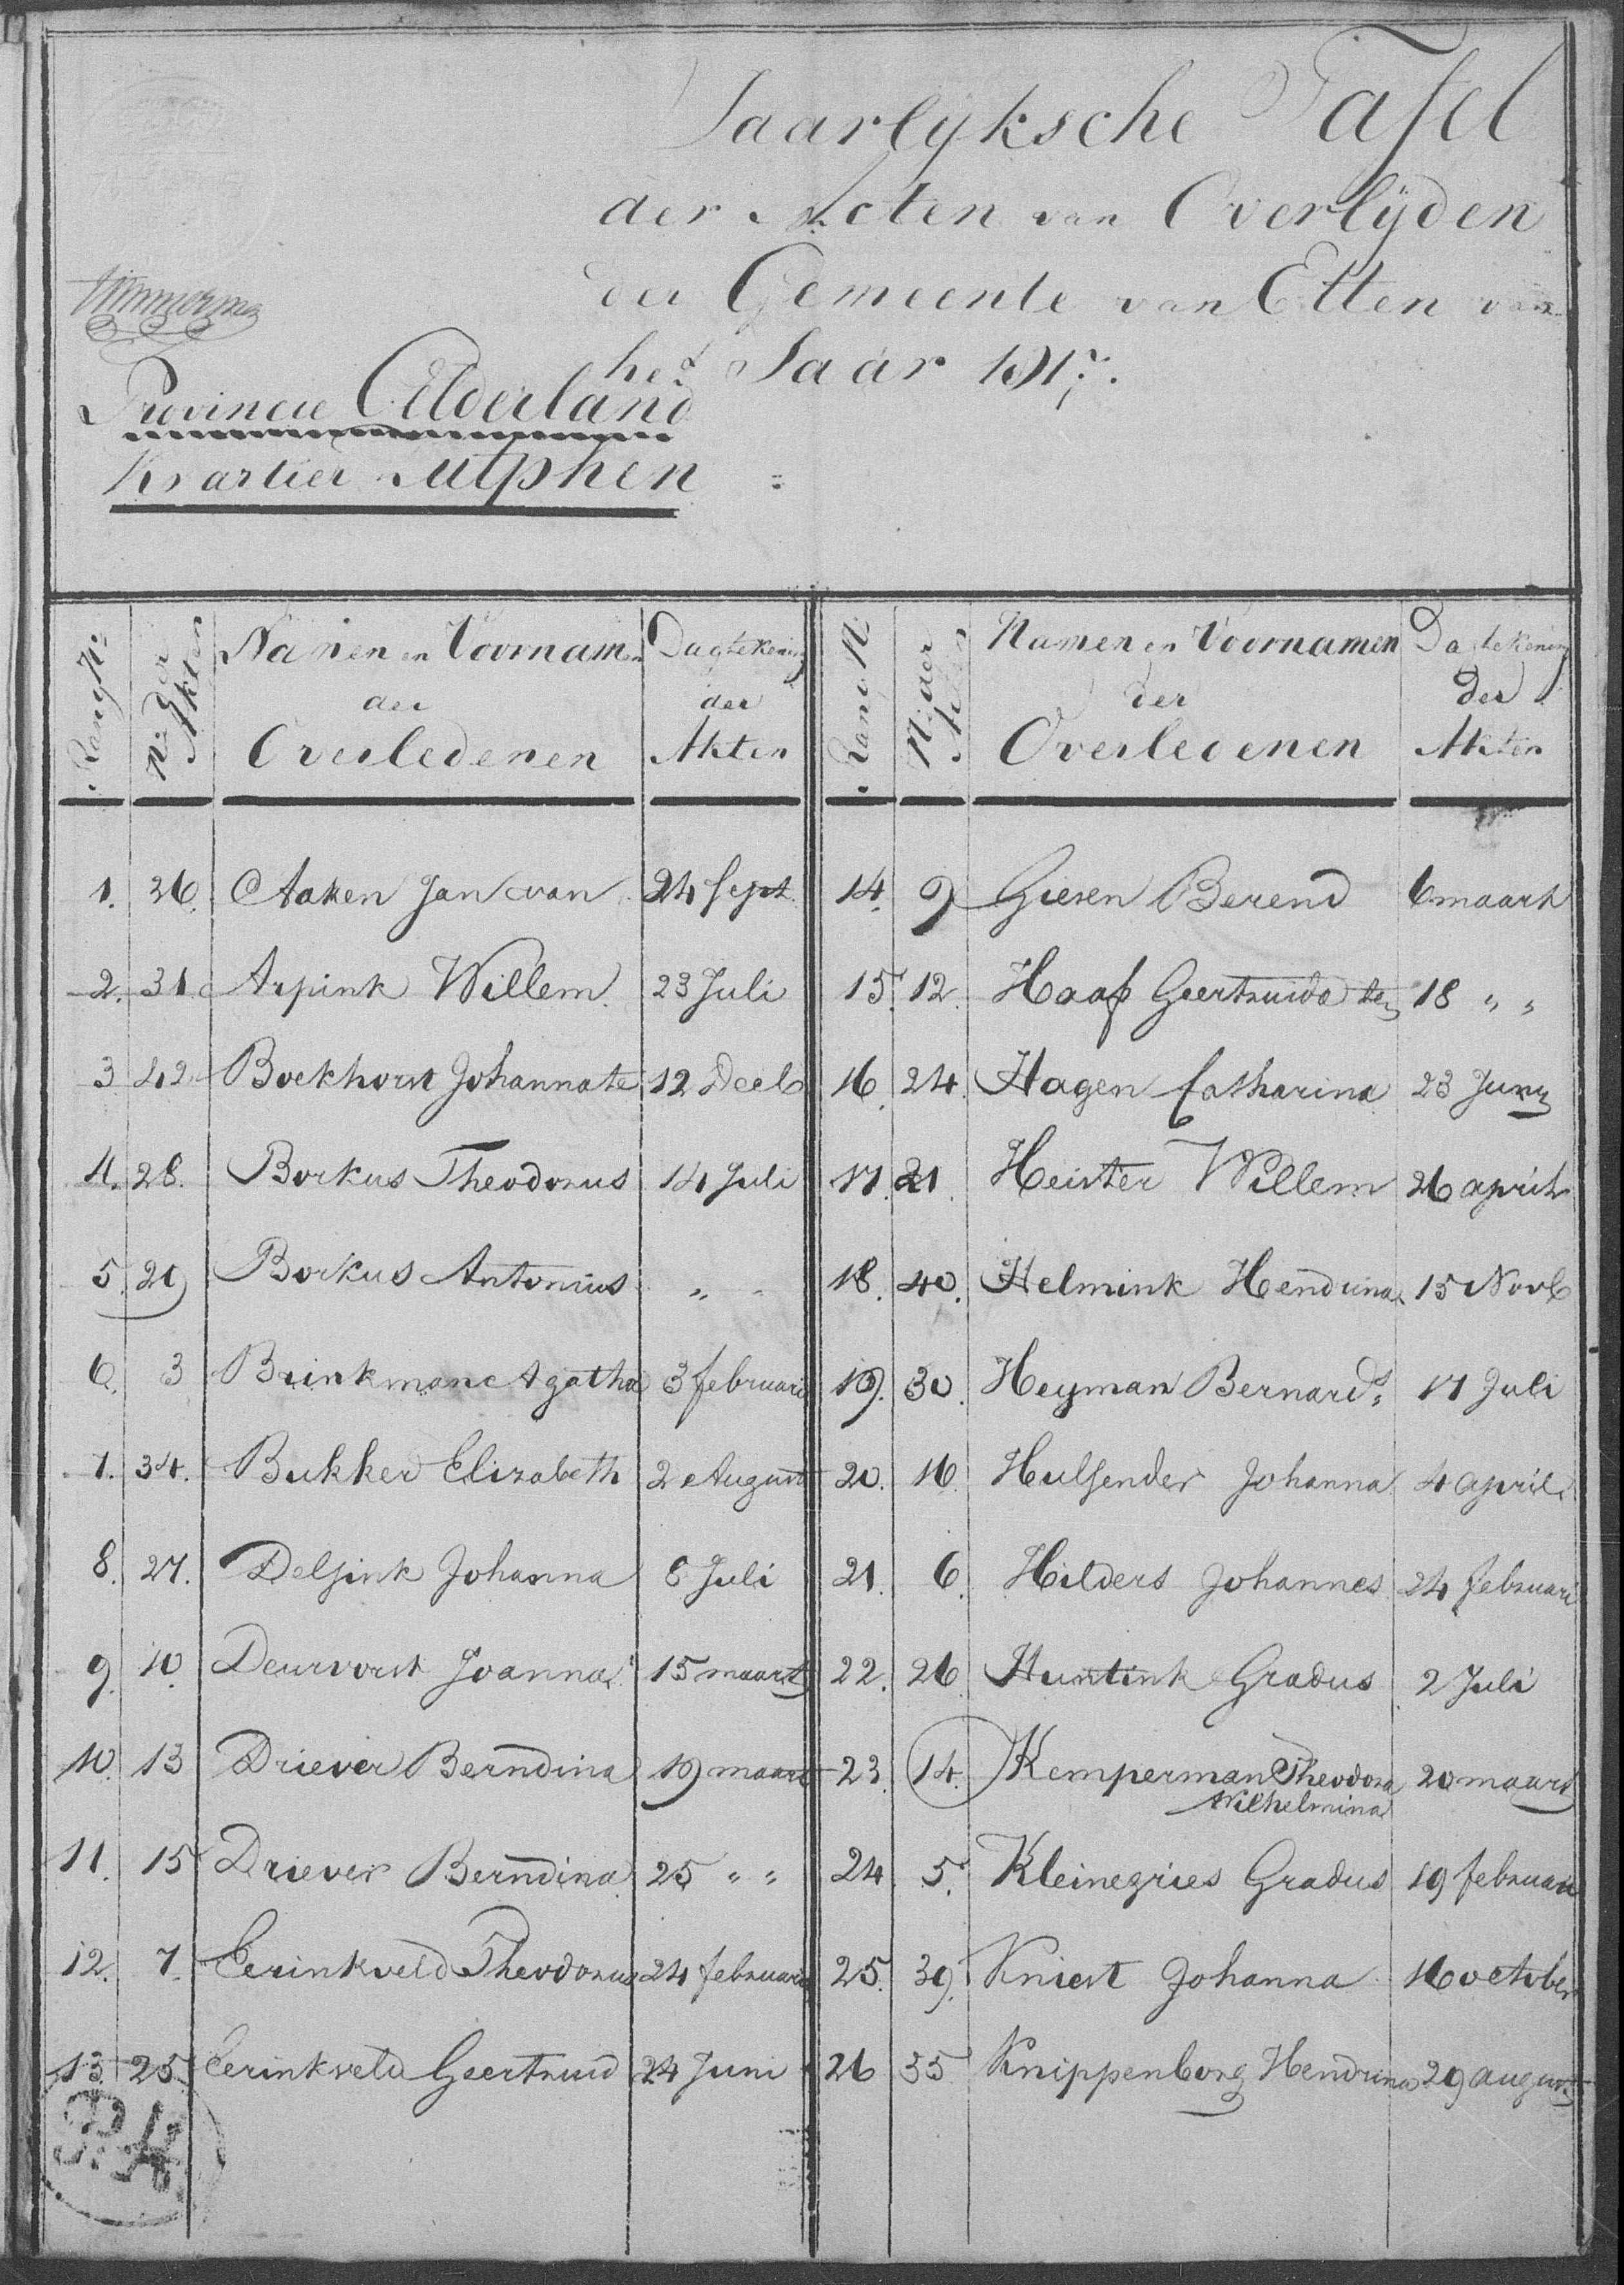 Jaarlyksche Tafel
der Acten van Overlijden
der Gemeente van Etten van
het Jaar 1817.
Provincie Gelderland
Kwartier Zutphen
Rang N: | N: der Akten | Namen en Voornamen der Overledenen | Dagtekening der Akten
1. 26. Aaken Jan van 24 Sept.
2. 31 Arpink Willem. 23 Juli
3 42 Boekhorst Johanna te 12 Decb
4. 28. Borkus Theodorus 14 Juli
5. 29 Borkus Antonius " "
6. 3 Brinkman Agatha 3 februari
7. 34. Bukker Elizabeth 2 August
8. 27. Delsink Johanna 8 Juli
9. 10. Deurvorst Joanna 15 maart
10. 13 Driever Berndina 19 maart
11. 15 Driever Berndina 25 " "
12. 7. Eerinkveld Theodorus 24 februari
13 25 Eerinkveld Geertruid 24 Juni
Rang N: | N: der Akten | Namen en Voornamen der Overledenen | Dagtekening der Akten
14. 9 Giesen Berend 6 maart
15. 12. Haaf Geertruida ten 18 " "
16. 24. Hagen Catharina 23 Juny
17. 21. Heister Willem 26 april
18. 40. Helmink Hendrina 15 Novb
19. 30. Heyman Bernard: 17 Juli
20. 16. Hulsender Johanna 4 april
21. 6. Hilders Johannes 24 februari
22. 26 Huntink Gradus 2 Juli
23. 14. Kemperman Theodora 20 maart
Wilhelmina
24 5. Kleinegries Gradus 19 februari
25. 39. Kniest Johanna 16 october
26 35 Knippenborg Hendrina 29 august